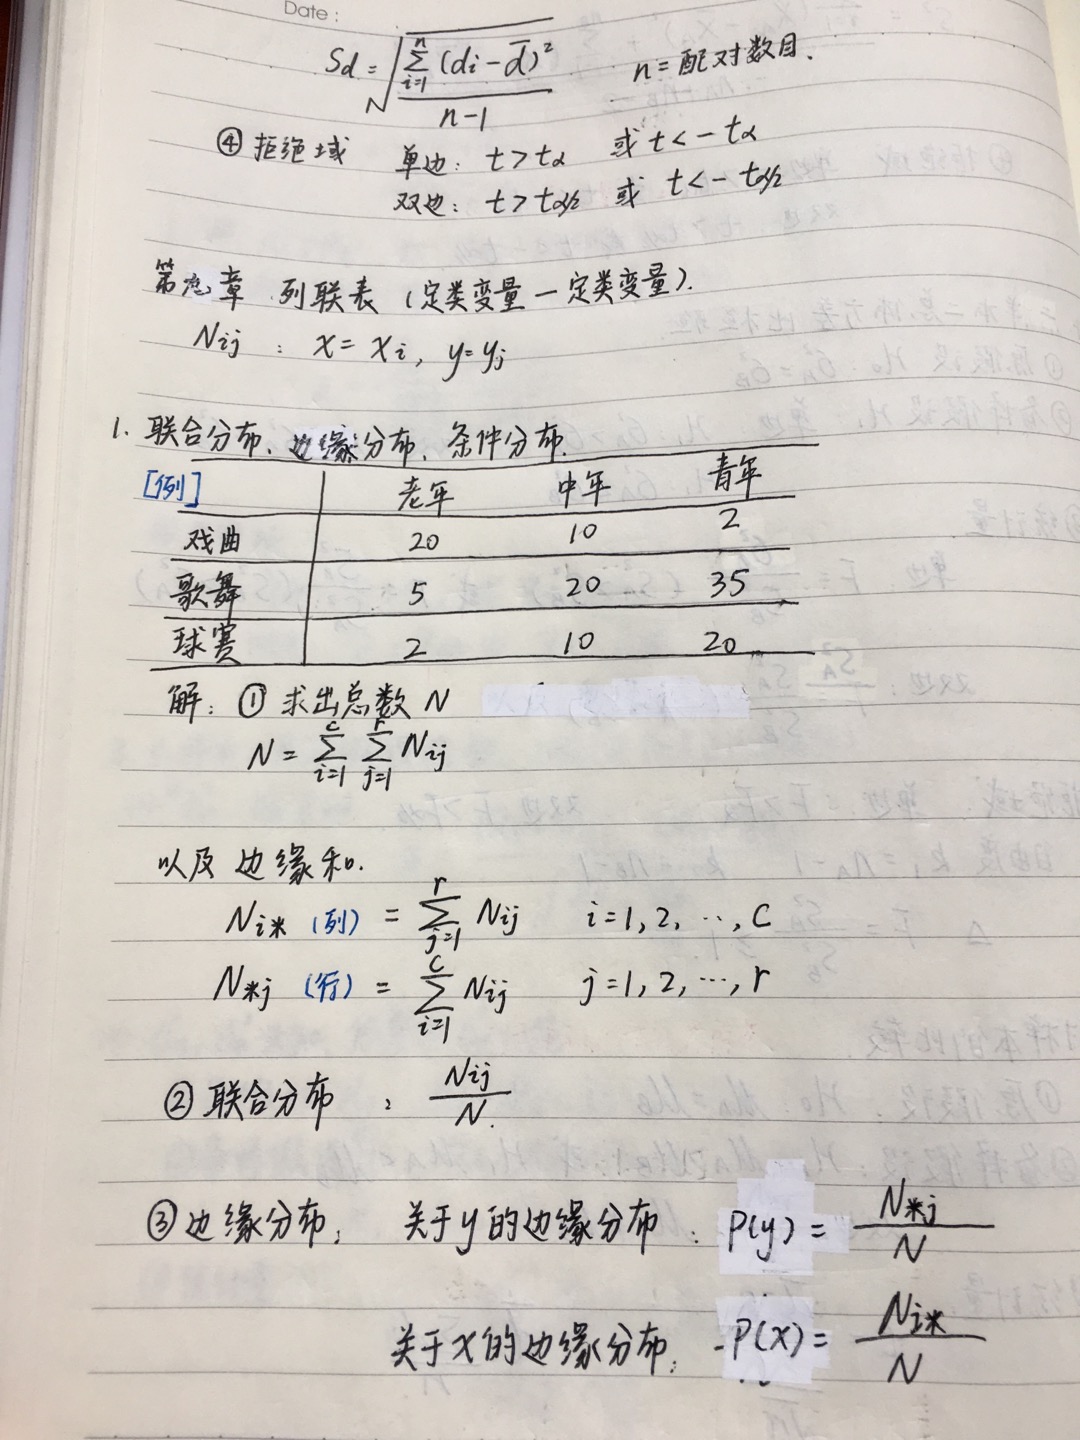 Date:
Sd = √(∑_{i=1}^{n} (di - d̄)² / (n-1)) n=配对数目.
④ 拒绝域 单边: t>tα 或 t<-tα
双边: t>tα/2 或 t<-tα/2
第九章 列联表 (定类变量—定类变量).
Nij : x=xi, y=yj
1. 联合分布、边缘分布、条件分布.
[例] 老年 中年 青年
戏曲 20 10 2
歌舞 5 20 35
球赛 2 10 20
解: ① 求出总数 N
N = ∑_{i=1}^{c} ∑_{j=1}^{r} Nij
以及 边缘和.
Ni* (列) = ∑_{j=1}^{r} Nij i=1,2,…,c
N*j (行) = ∑_{i=1}^{c} Nij j=1,2,…,r
② 联合分布: Nij/N
③ 边缘分布: 关于y的边缘分布: P(y) = N*j/N
关于x的边缘分布: P(x) = Ni*/N